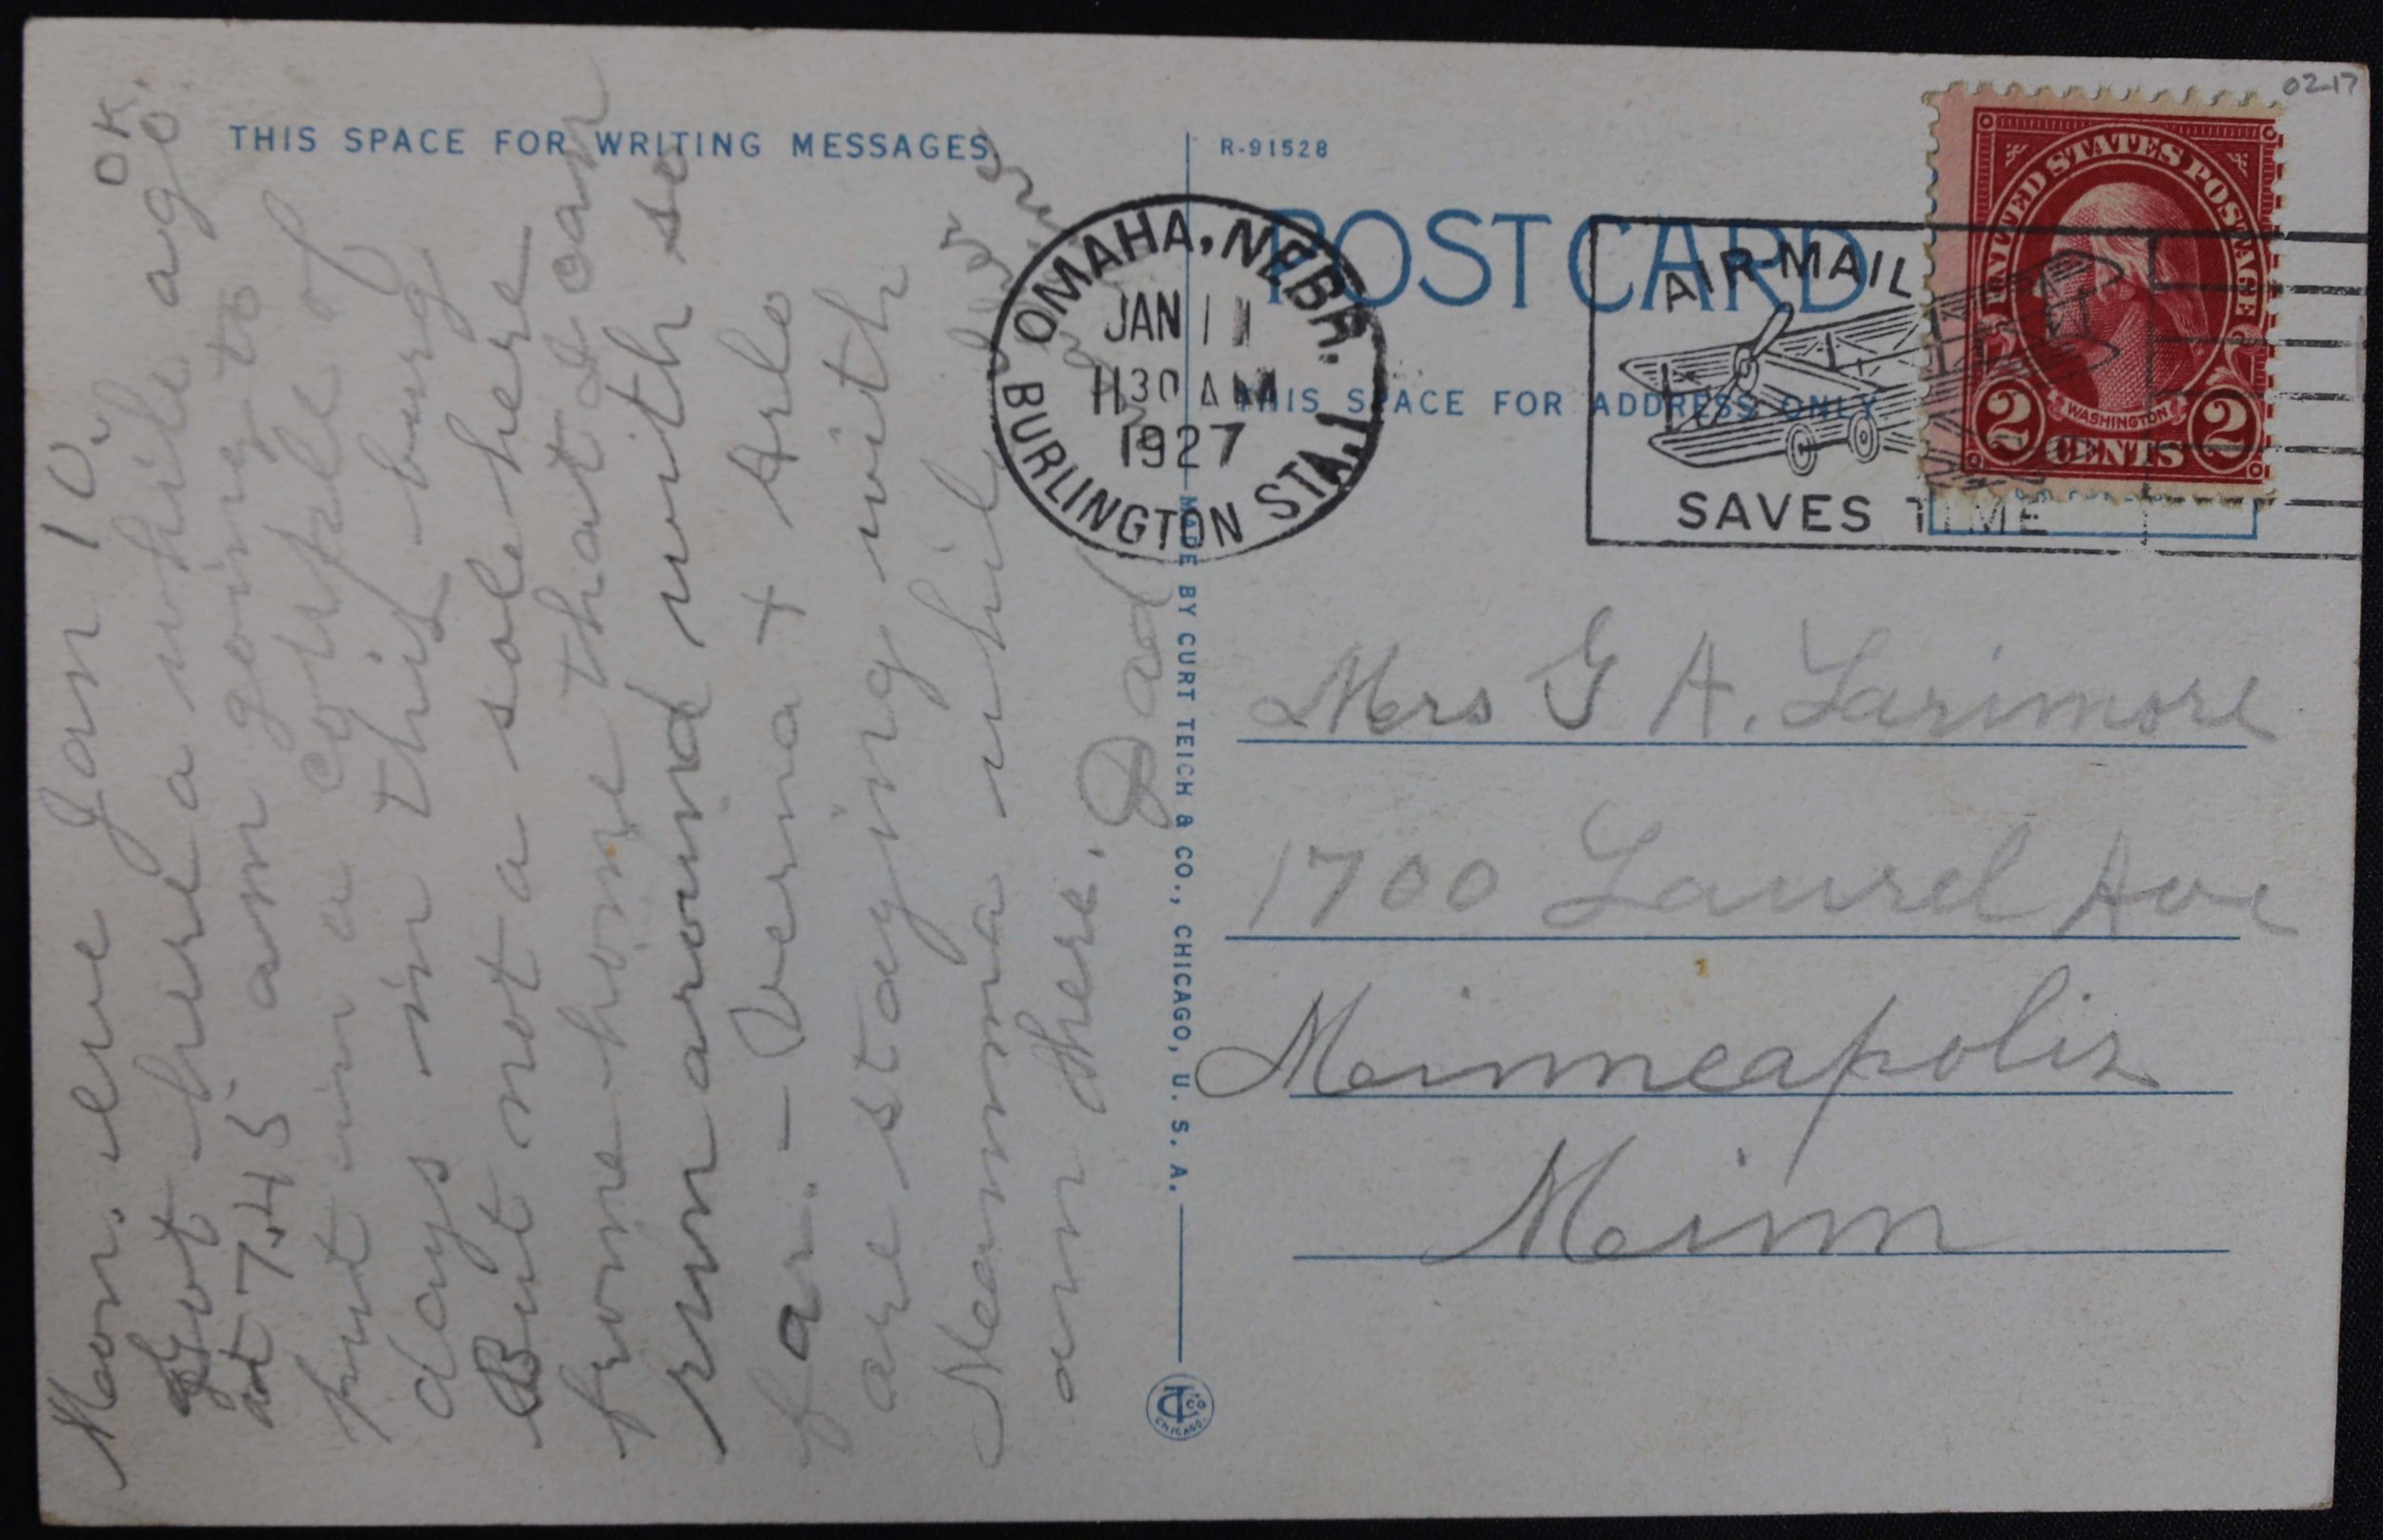 THIS SPACE FOR WRITING MESSAGES
Mon. eve Jan 10.
Got here a while ago OK.
at 7.45 am going to
put in a couple of
days in this burg
But not a sole here
from home that I can
run around with so
far. - Verna + Arlo
are staying with
Neamma while
am there. Dad
R-91528
POST CARD
THIS SPACE FOR ADDRESS ONLY
OMAHA, NEBR.
JAN 11
1130 AM
1927
BURLINGTON STA. 1
AIR MAIL
SAVES TIME
UNITED STATES POSTAGE
WASHINGTON
2 CENTS 2
02-17
Mrs G A. Larimore
1700 Laurel Ave
Minneapolis
Minn
MADE BY CURT TEICH & CO., CHICAGO, U. S. A.
CHICAGO